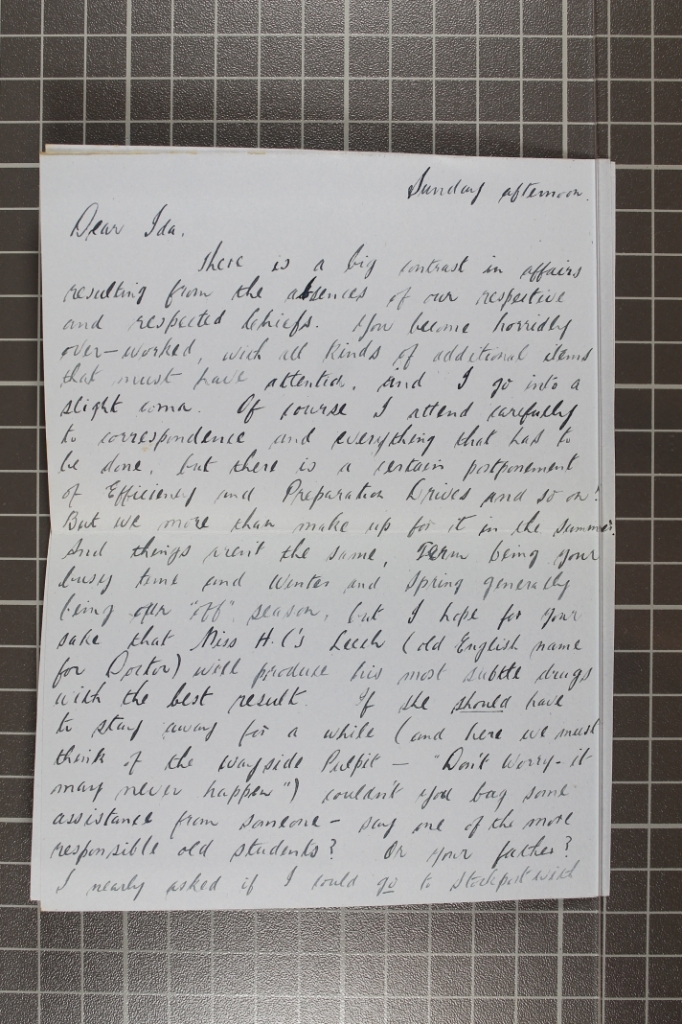 Sunday afternoon.
Dear Ida,
There is a big contrast in affairs
resulting from the absences of our respective
and respected Chiefs. You become horridly
over-worked, with all kinds of additional items
that must have attention, and I go into a
slight coma. Of course I attend carefully
to correspondence and everything that has to
be done, but there is a certain postponement
of Efficiency and Preparation Drives and so on!
But we more than make up for it in the summer.
And things aren't the same, Term being your
busy time and Winter and Spring generally
being our "off" season, but I hope for your
sake that Miss H.C's Leech (old English name
for Doctor) will produce his most subtle drugs
with the best result. If she should have
to stay away for a while (and here we must
think of the wayside Pulpit - "Don't Worry - it
may never happen") couldn't you bag some
assistance from someone - say one of the more
responsible old students? Or your father?
I nearly asked if I could go to Stockport with